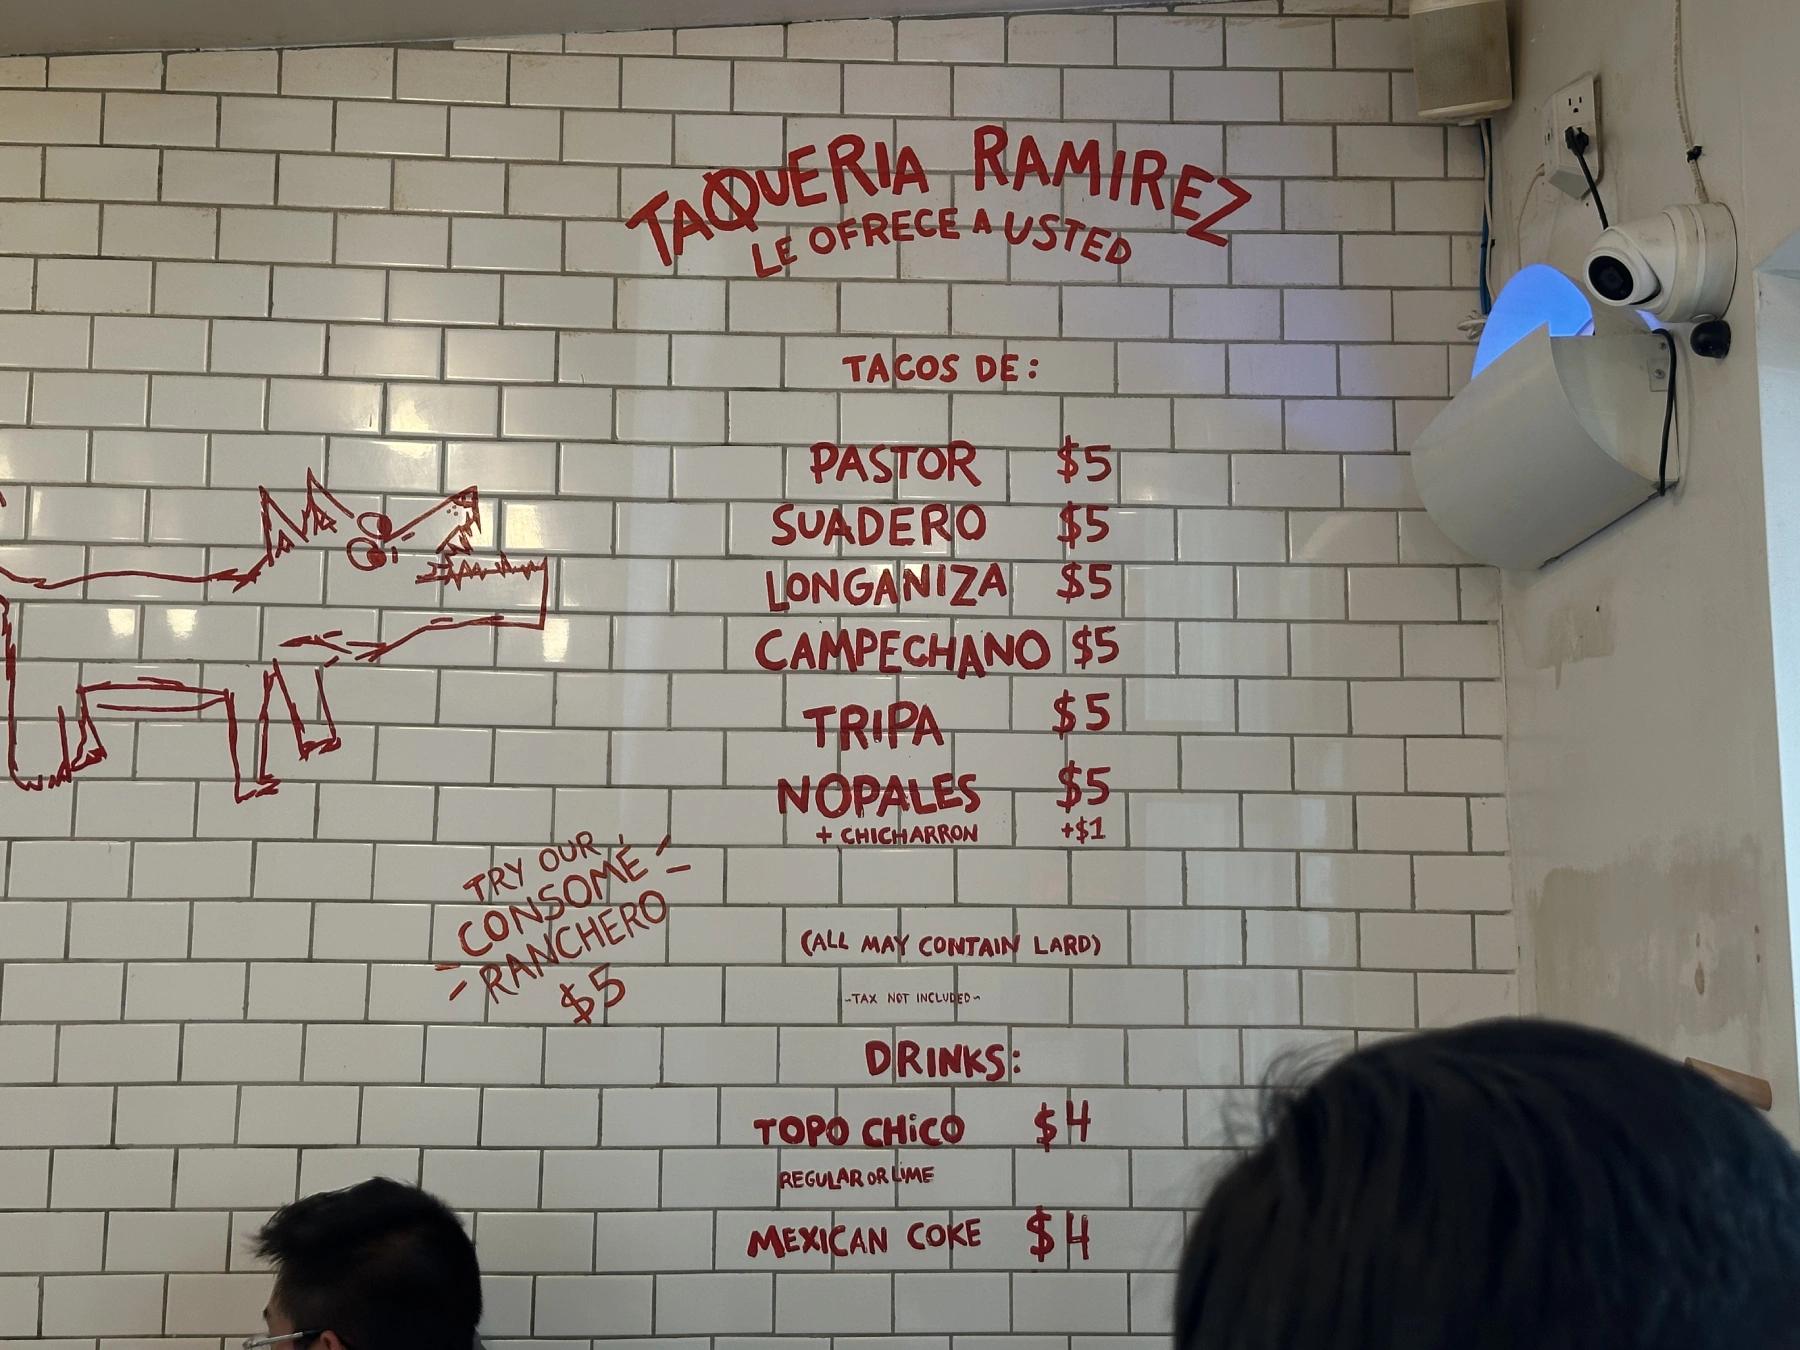 TAQUERIA RAMIREZ
LE OFRECE A USTED
TACOS DE:
PASTOR $5
SUADERO $5
LONGANIZA $5
CAMPECHANO $5
TRIPA $5
NOPALES $5
+ CHICHARRON +$1
TRY OUR
CONSOMÉ
RANCHERO
$5
(ALL MAY CONTAIN LARD)
~TAX NOT INCLUDED~
DRINKS:
TOPO CHiCO $4
REGULAR OR LIME
MEXICAN COKE $4